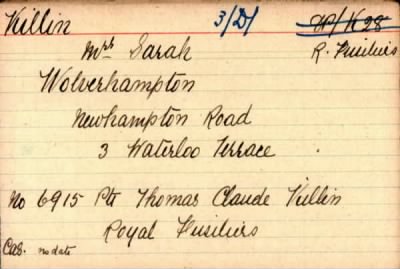 Killin 3/D/ W/K 28
Mrs Sarah R. Fusiliers
Wolverhampton
Newhampton Road
3 Waterloo Terrace
No 6915 Pte Thomas Claude Killin
Royal Fusiliers
Cas. no date